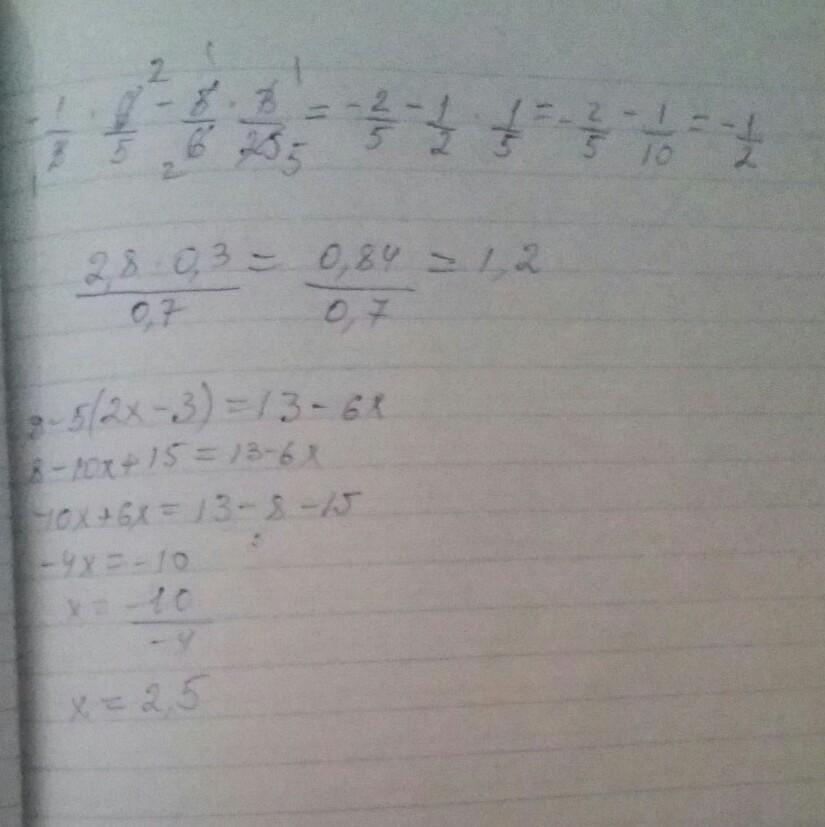 -1/3 · 6/5 - 5/6 · 3/25 = -2/5 - 1/2 · 1/5 = -2/5 - 1/10 = -1/2
2,8 · 0,3 / 0,7 = 0,84 / 0,7 = 1,2
8-5(2x-3)=13-6x
8-10x+15=13-6x
-10x+6x=13-8-15
-4x=-10
x= -10/-4
x=2,5